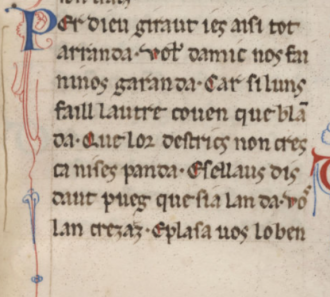 Per dieu giraut ies aisi tot
arranda· vol damic nos fai
ninos garanda· Car si luns
faill lautre couen que blā
da· Que lor destrics non cres
ca nises panda· Esellaus dis
daut pueg que sia lan da· vos
lan crezaz· E plasa uos lo ben